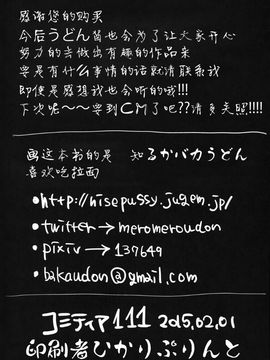 感谢您的购买
今后うどん酱也会为了让大家开心
努力的去做出有趣的作品来
要是有什么事情的话就请联系我
即使是感想我也会听的哦!!!
下次呢〜〜要到CM了吧??请多关照!!!!
画这本书的是 知るかバカうどん
喜欢吃拉面
•http://nisepussy.jugem.jp/
•twitter→meromeroudon
•pixiv→139649
•bakaudon@gmail.com
コミティア111 2015.02.01
印刷者ひかりぷりんと